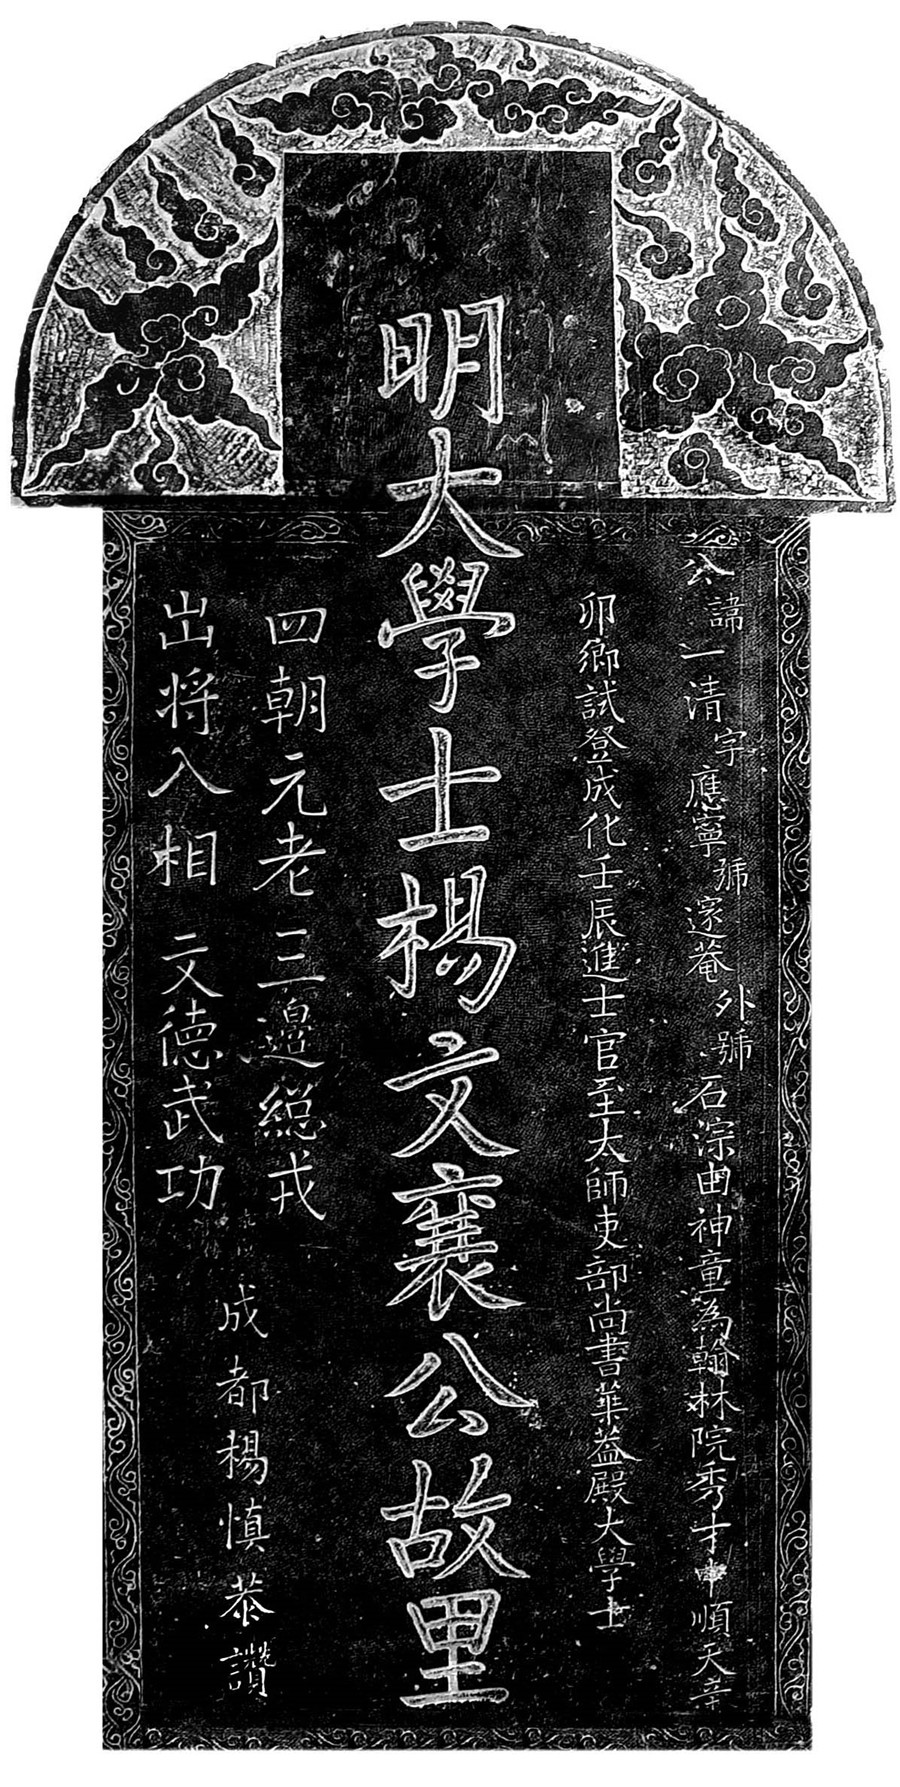 公諱一清字應寧號邃菴外號石淙由神童為翰林院秀才中順天辛
卯鄉試登成化壬辰進士官至大師吏部尚書華蓋殿大學士
明大學士楊文襄公故里
四朝元老三邊總戎
出將入相文德武功
成都楊慎恭讚